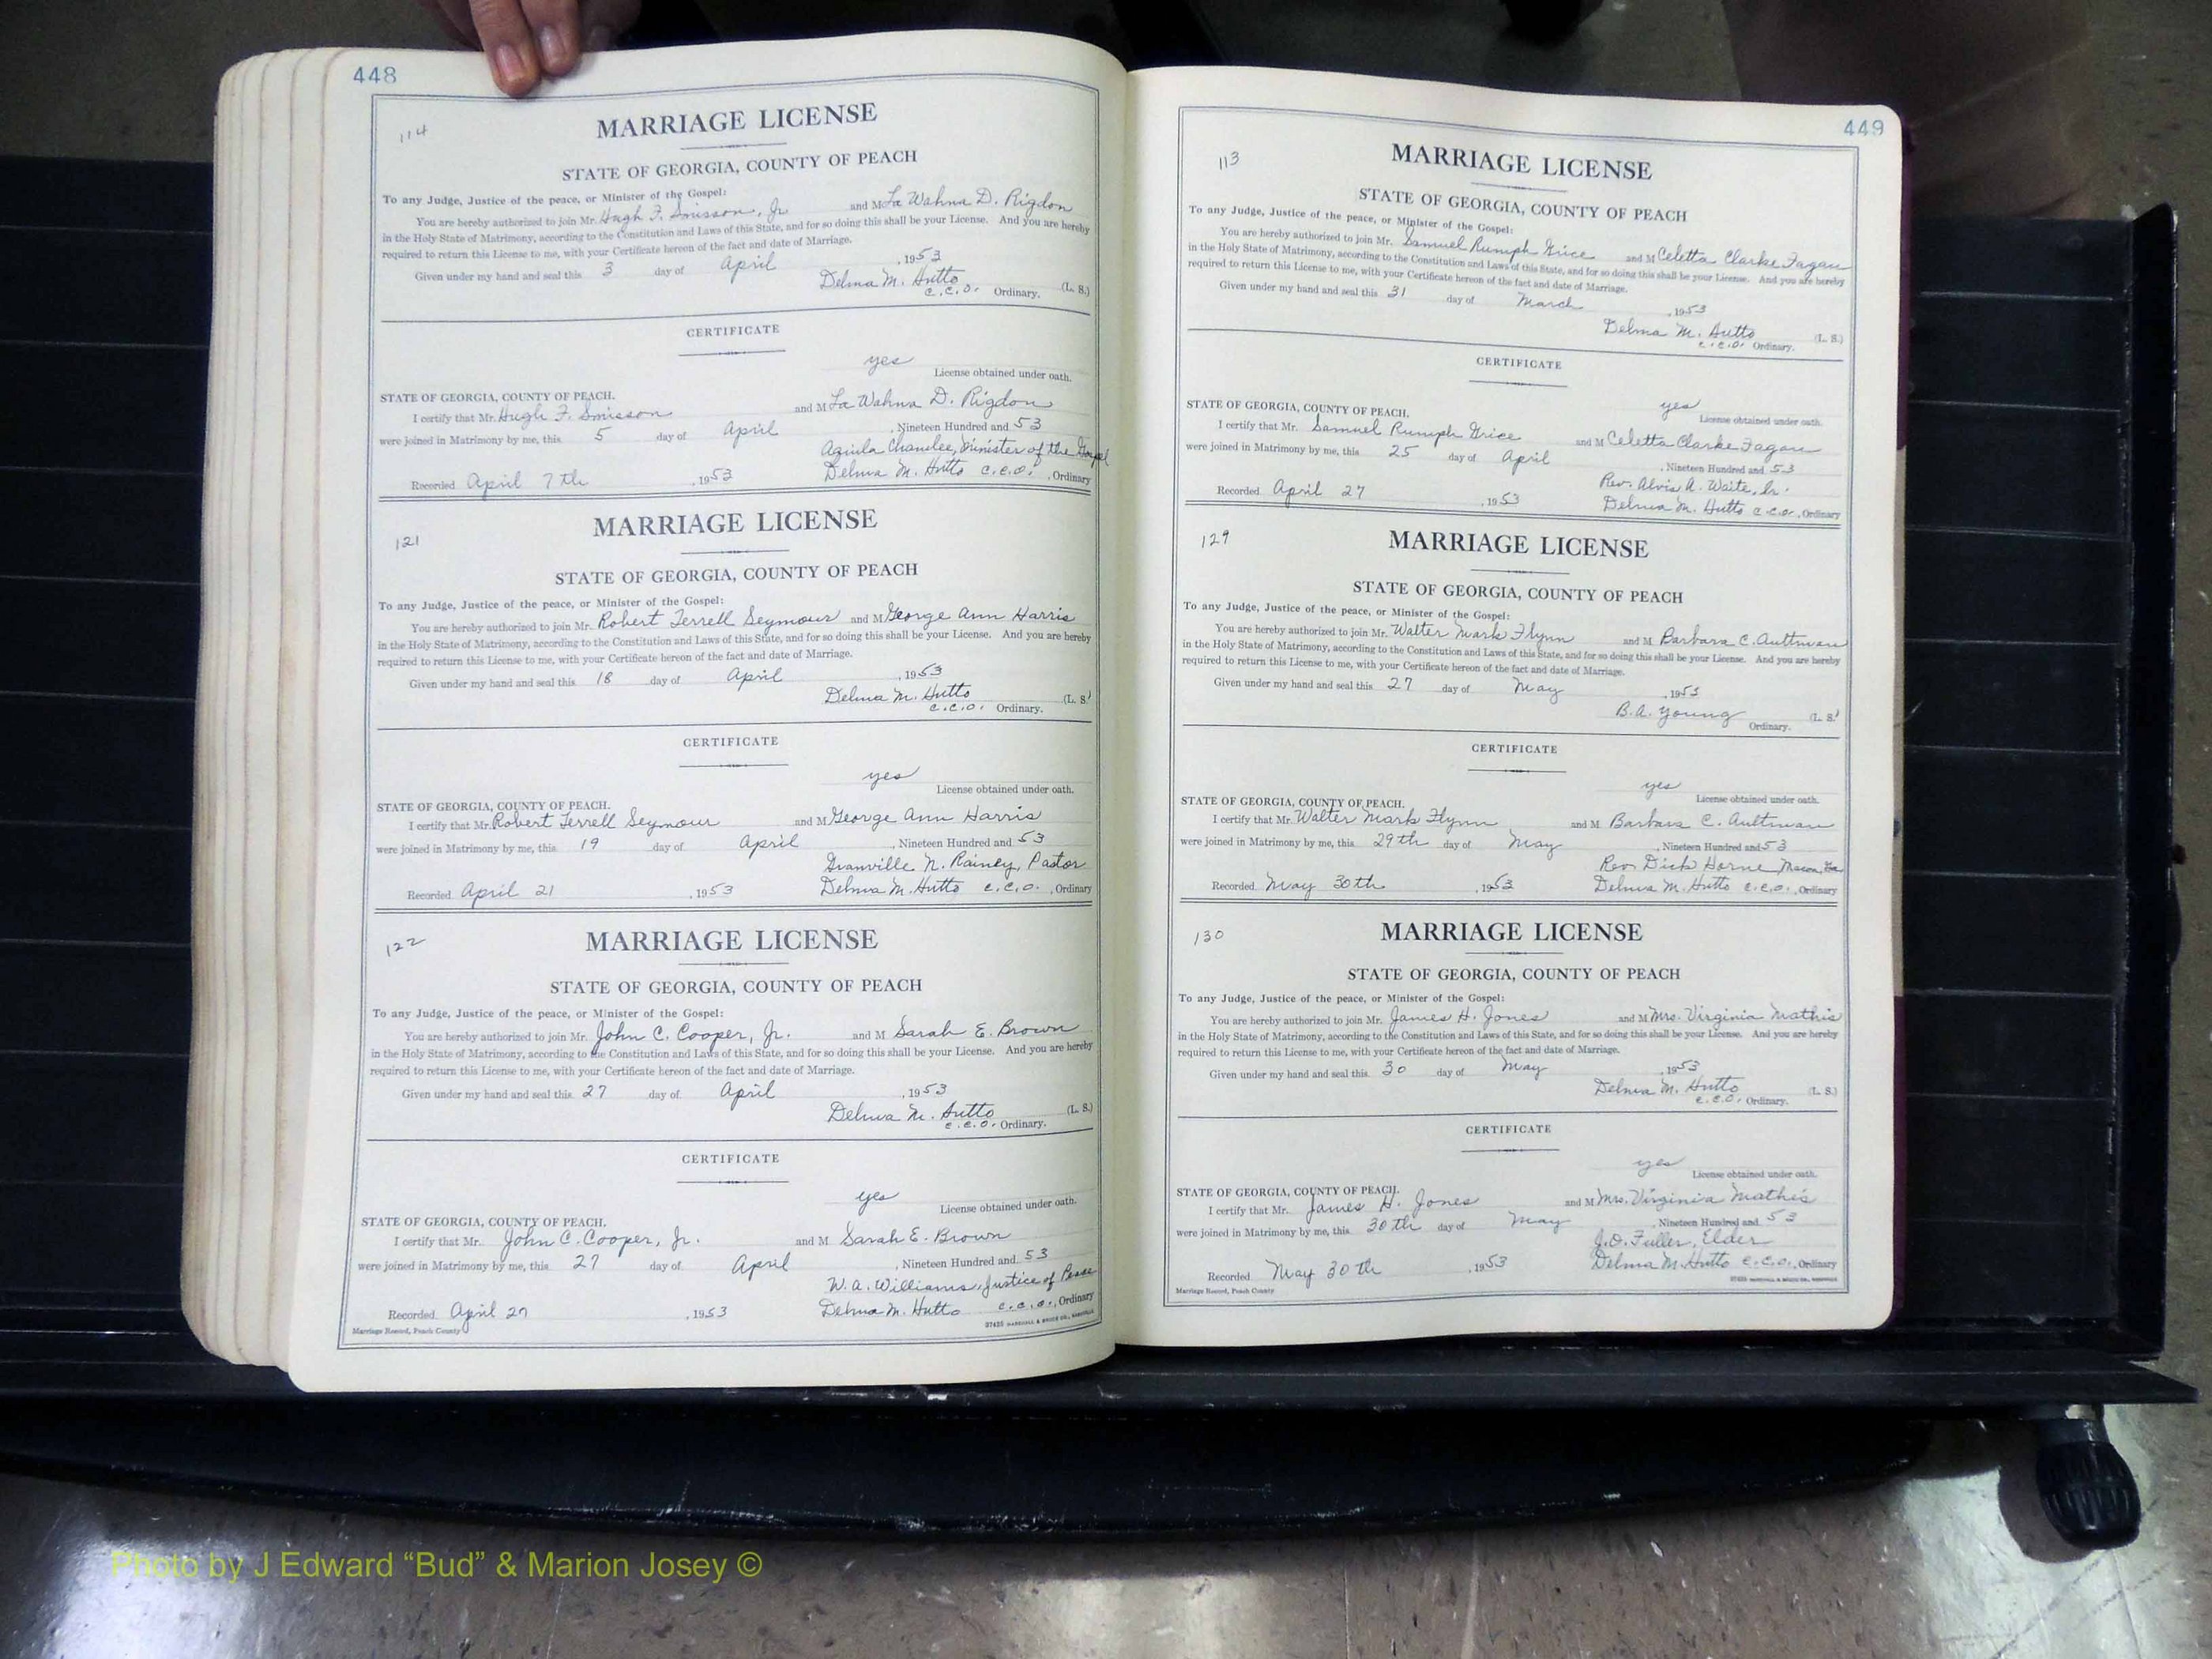 448
114
MARRIAGE LICENSE
STATE OF GEORGIA, COUNTY OF PEACH
To any Judge, Justice of the peace, or Minister of the Gospel:
You are hereby authorized to join Mr. Hugh F. Smisson, Jr and M La Wahna D. Rigdon
in the Holy State of Matrimony, according to the Constitution and Laws of this State, and for so doing this shall be your License. And you are hereby
required to return this License to me, with your Certificate hereon of the fact and date of Marriage.
Given under my hand and seal this 3 day of April , 1953
Delma M. Hutto (L. S.)
C.C.O. Ordinary.
CERTIFICATE
yes
License obtained under oath.
STATE OF GEORGIA, COUNTY OF PEACH.
I certify that Mr. Hugh F. Smisson and M La Wahna D. Rigdon
were joined in Matrimony by me, this 5 day of April , Nineteen Hundred and 53
Chanlee, Minister of the Gospel
Recorded April 7th , 1953 Delma M. Hutto C.C.O. , Ordinary
121
MARRIAGE LICENSE
STATE OF GEORGIA, COUNTY OF PEACH
To any Judge, Justice of the peace, or Minister of the Gospel:
You are hereby authorized to join Mr. Robert Terrell Seymour and M George Ann Harris
in the Holy State of Matrimony, according to the Constitution and Laws of this State, and for so doing this shall be your License. And you are hereby
required to return this License to me, with your Certificate hereon of the fact and date of Marriage.
Given under my hand and seal this 18 day of April , 1953
Delma M. Hutto (L. S.)
C.C.O. Ordinary.
CERTIFICATE
yes
License obtained under oath.
STATE OF GEORGIA, COUNTY OF PEACH.
I certify that Mr. Robert Terrell Seymour and M George Ann Harris
were joined in Matrimony by me, this 19 day of April , Nineteen Hundred and 53
Granville N. Rainey, Pastor
Recorded April 21 , 1953 Delma M. Hutto C.C.O. , Ordinary
122
MARRIAGE LICENSE
STATE OF GEORGIA, COUNTY OF PEACH
To any Judge, Justice of the peace, or Minister of the Gospel:
You are hereby authorized to join Mr. John C. Cooper, Jr. and M Sarah E. Brown
in the Holy State of Matrimony, according to the Constitution and Laws of this State, and for so doing this shall be your License. And you are hereby
required to return this License to me, with your Certificate hereon of the fact and date of Marriage.
Given under my hand and seal this 27 day of April , 1953
Delma M. Hutto (L. S.)
C.C.O. Ordinary.
CERTIFICATE
yes
License obtained under oath.
STATE OF GEORGIA, COUNTY OF PEACH.
I certify that Mr. John C. Cooper, Jr. and M Sarah E. Brown
were joined in Matrimony by me, this 27 day of April , Nineteen Hundred and 53
W. A. Williams, Justice of Peace
Recorded April 27 , 1953 Delma M. Hutto C.C.O., Ordinary
Marriage Record, Peach County
449
113
MARRIAGE LICENSE
STATE OF GEORGIA, COUNTY OF PEACH
To any Judge, Justice of the peace, or Minister of the Gospel:
You are hereby authorized to join Mr. Samuel Rumph Grice and M Celetta Clarke Fagan
in the Holy State of Matrimony, according to the Constitution and Laws of this State, and for so doing this shall be your License. And you are hereby
required to return this License to me, with your Certificate hereon of the fact and date of Marriage.
Given under my hand and seal this 31 day of March , 1953
Delma M. Hutto (L. S.)
C.C.O. Ordinary.
CERTIFICATE
yes
License obtained under oath.
STATE OF GEORGIA, COUNTY OF PEACH.
I certify that Mr. Samuel Rumph Grice and M Celetta Clarke Fagan
were joined in Matrimony by me, this 25 day of April , Nineteen Hundred and 53
Rev. Alvis A. Waite,
Recorded April 27 , 1953 Delma M. Hutto C.C.O., Ordinary
129
MARRIAGE LICENSE
STATE OF GEORGIA, COUNTY OF PEACH
To any Judge, Justice of the peace, or Minister of the Gospel:
You are hereby authorized to join Mr. Walter Mark Flynn and M Barbara C. Aultman
in the Holy State of Matrimony, according to the Constitution and Laws of this State, and for so doing this shall be your License. And you are hereby
required to return this License to me, with your Certificate hereon of the fact and date of Marriage.
Given under my hand and seal this 27 day of May , 1953
B.A. Young (L. S.)
Ordinary.
CERTIFICATE
yes
License obtained under oath.
STATE OF GEORGIA, COUNTY OF PEACH.
I certify that Mr. Walter Mark Flynn and M Barbara C. Aultman
were joined in Matrimony by me, this 29th day of May , Nineteen Hundred and 53
Rev. Dick Horne, Macon, Ga
Recorded May 30th , 1953 Delma M. Hutto C.C.O., Ordinary
130
MARRIAGE LICENSE
STATE OF GEORGIA, COUNTY OF PEACH
To any Judge, Justice of the peace, or Minister of the Gospel:
You are hereby authorized to join Mr. James H. Jones and M Mrs. Virginia Mathis
in the Holy State of Matrimony, according to the Constitution and Laws of this State, and for so doing this shall be your License. And you are hereby
required to return this License to me, with your Certificate hereon of the fact and date of Marriage.
Given under my hand and seal this 30 day of May , 1953
Delma M. Hutto (L. S.)
C.C.O, Ordinary.
CERTIFICATE
yes
License obtained under oath.
STATE OF GEORGIA, COUNTY OF PEACH.
I certify that Mr. James H. Jones and M Mrs. Virginia Mathis
were joined in Matrimony by me, this 30th day of May , Nineteen Hundred and 53
J.O. Fuller, Elder
Recorded May 30th , 1953 Delma M. Hutto C.C.O., Ordinary
Marriage Record, Peach County
Photo by J Edward “Bud” & Marion Josey ©